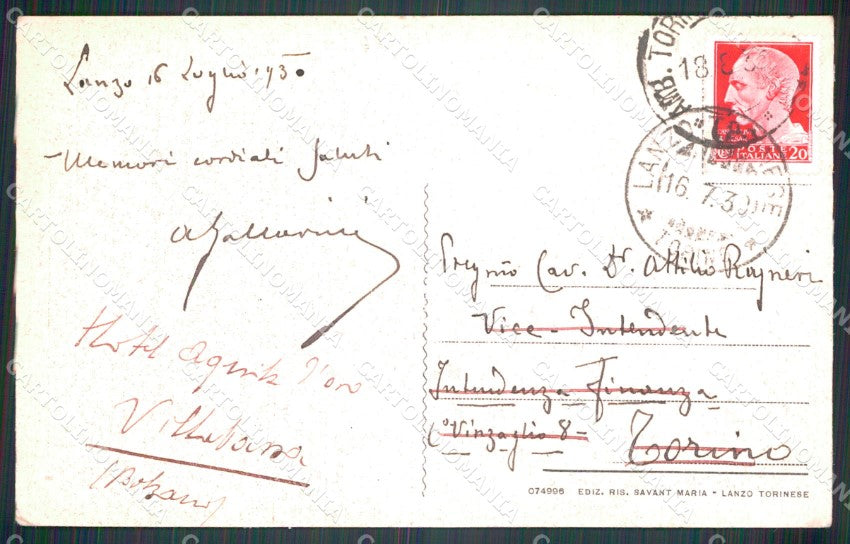 Lanzo 16 Luglio 930
Memori cordiali saluti
Hotel Aquila d'oro
Villabassa
(Bolzano)
AMB. TORI
18
LANZO
16. 7. 30
POSTE
ITALIANE 20
Pregmo Cav. Dr. Attilio Rayneri
Vice-Intendente
Intendenza Finanza
Co Vinzaglio 8 -
Torino
074996 EDIZ. RIS. SAVANT MARIA - LANZO TORINESE
CARTOLINOMANIA